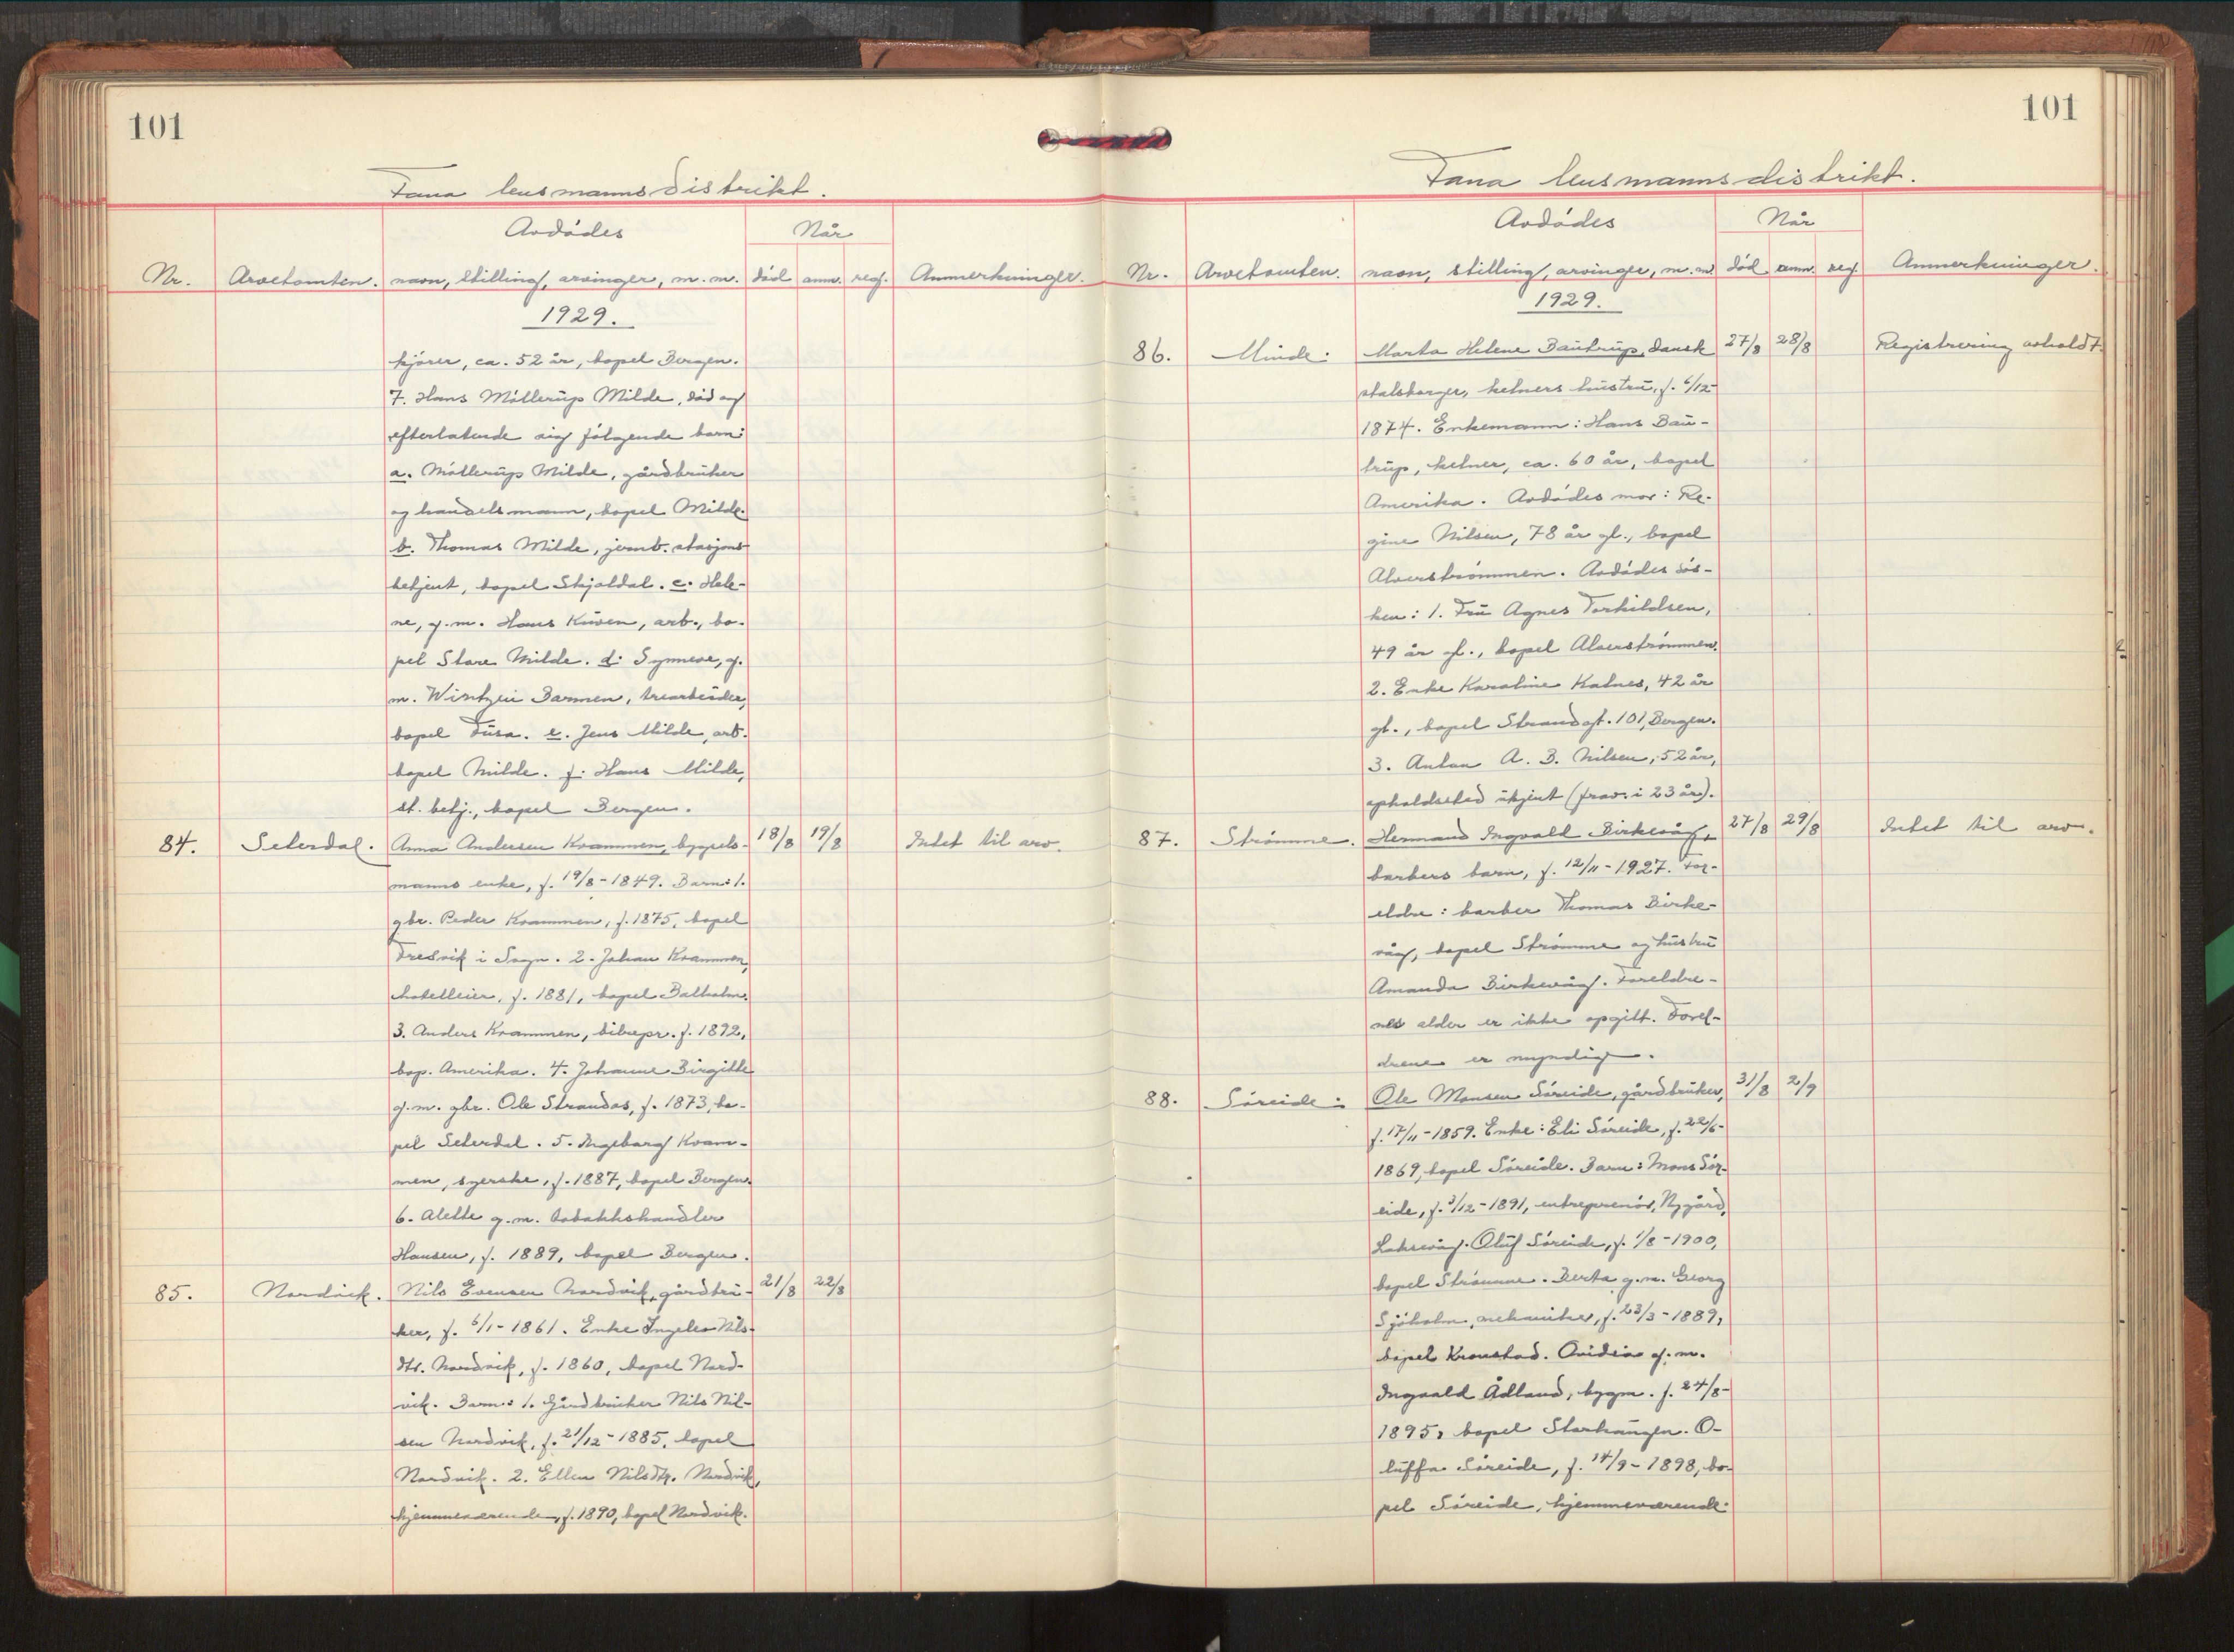 101
Fana lensmannsdistrikt.
Avdødes
Når
Nr. Arvetomten. navn, stilling, arvinger, m. m. død anm. reg. Anmerkninger.
1929.
kjører, ca. 52 år, bopel Bergen.
7. Hans Möllerup Milde, död og
efterlatende sig følgende barn:
a. Möllerup Milde, gårdbruker
og handelsmann, bopel Milde.
b. Thomas Milde, jernb. stasjons-
betjent, bopel Skjoldal. c. Hele-
ne, g. m. Hans Kuven, arb., bo-
pel Store Milde. d. Synneve, g.
m. Wintzen Barmen, trearbeider,
bopel Fusa. e. Jens Milde, arb.
bopel Milde. f. Hans Milde,
st. betj., bopel Bergen.
84. Seterdal. Anna Andersen Kvammen, bygsels- 18/8 19/8 Intet til arv.
manns enke, f. 19/8 - 1849. Barn: 1.
gbr. Peder Kvammen, f. 1875, bopel
Fresvik i Sogn. 2. Johan Kvammen,
hotelleier, f. 1881, bopel Balholm.
3. Anders Kvammen, f. 1892,
bop. Amerika. 4. Johanne Birgitte
g. m. gbr. Ole Strandos, f. 1873, bo-
pel Seterdal. 5. Ingeborg Kvam-
men, syerske, f. 1887, bopel Bergen.
6. Alette g. m. tobakkshandler
Hansen, f. 1889, bopel Bergen.
85. Nordvik. Nils Evensen Nordvik, gårdbru- 21/8 22/8
ker, f. 6/1 - 1861. Enke Ingeleiv Nils-
dtr. Nordvik, f. 1860, bopel Nord-
vik. Barn: 1. Gårdbruker Nils Nil-
sen Nordvik, f. 21/12 - 1885, bopel
Nordvik. 2. Ellen Nilsdtr. Nordvik,
hjemmeværende, f. 1890, bopel Nordvik.
101
Fana lensmannsdistrikt.
Avdødes
Når
Nr. Arvetomten. navn, stilling, arvinger, m. m. død anm. reg. Anmerkninger.
1929.
86. Minde: Marta Helene Bautrup, dansk 27/8 28/8 Registrering avholdt.
statsborger, kelners hustru, f. 6/12-
1874. Enkemann: Hans Bau-
trup, kelner, ca. 60 år, bopel
Amerika. Avdødes mor: Re-
gine Nilsen, 78 år gl., bopel
Alverstrømmen. Avdødes søs-
ken: 1. Fru Agnes Torkildsen,
49 år gl., bopel Alverstrømmen.
2. Enke Karoline Kalnes, 42 år
gl., bopel Strandgt. 101, Bergen.
3. Anton A. B. Nilsen, 52 år,
opholdssted ukjent (frav. i 23 år).
87. Strømme. Hermand Ingvald Birkevåg, 27/8 29/8 Intet til arv.
barbers barn, f. 12/11 - 1927. For-
eldre: barber Thomas Birke-
våg, bopel Strømme og hustru
Amanda Birkevåg. Foreldre-
nes alder er ikke opgitt. Forel-
drene er myndige.
88. Søreide: Ole Monsen Søreide, gårdbruker, 31/8 2/9
f. 17/11 - 1859. Enke: Eli Søreide, f. 22/6-
1869, bopel Søreide. Barn: Mons Sør-
eide, f. 3/12 - 1891, entreprenør, Nygård,
Laksevåg. Oluf Søreide, f. 1/8 - 1900,
bopel Strømme. Berta g. m. Georg
Sjøholm, mekaniker, f. 23/3 - 1889,
bopel Kronstad. Ovidia g. m.
Ingvald Ådland, bygm. f. 24/8-
1895, bopel Storhaugen. O-
luffa Søreide, f. 14/9 - 1898, bo-
pel Søreide, hjemmeværende.